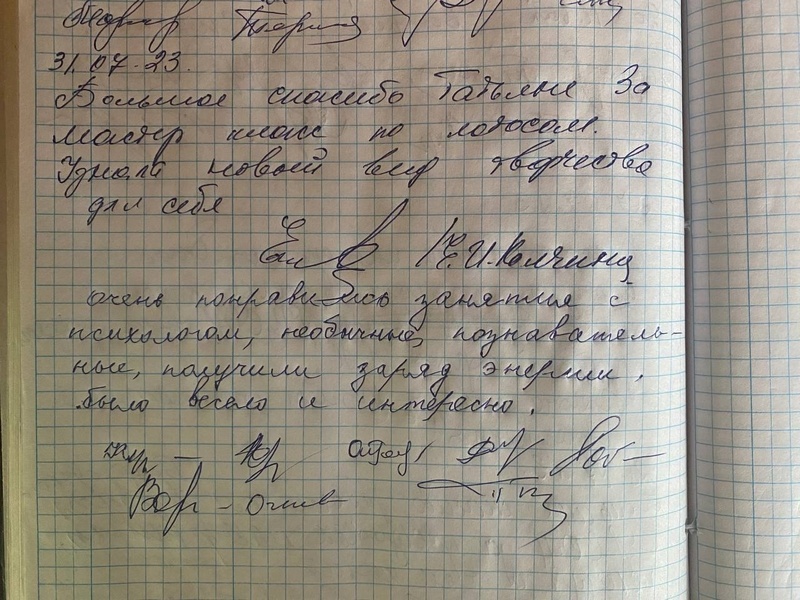 31.07.23.
Большое спасибо Татьяне За
мастер класс по лотосам.
Узнали новый вид творчества
для себя
очень понравились занятия с
психологом, необычные, познаватель-
ные, получили заряд энергии,
было весело и интересно.